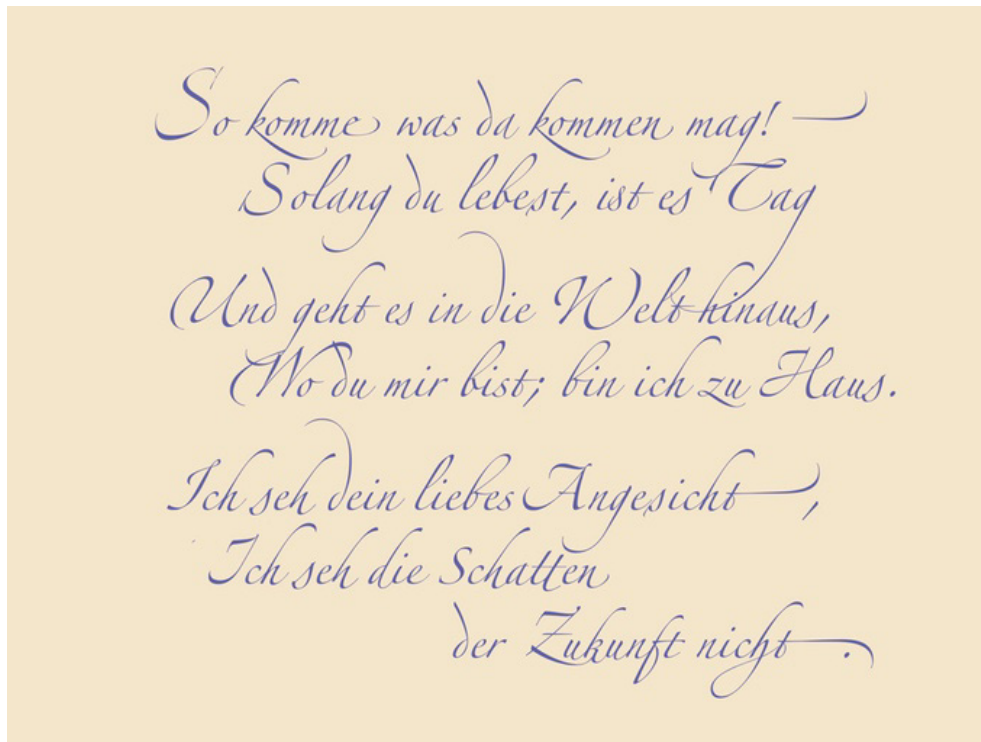 So komme was da kommen mag! —
Solang du lebest, ist es Tag
Und geht es in die Welt hinaus,
Wo du mir bist; bin ich zu Haus.
Ich seh dein liebes Angesicht,
Ich seh die Schatten
der Zukunft nicht.